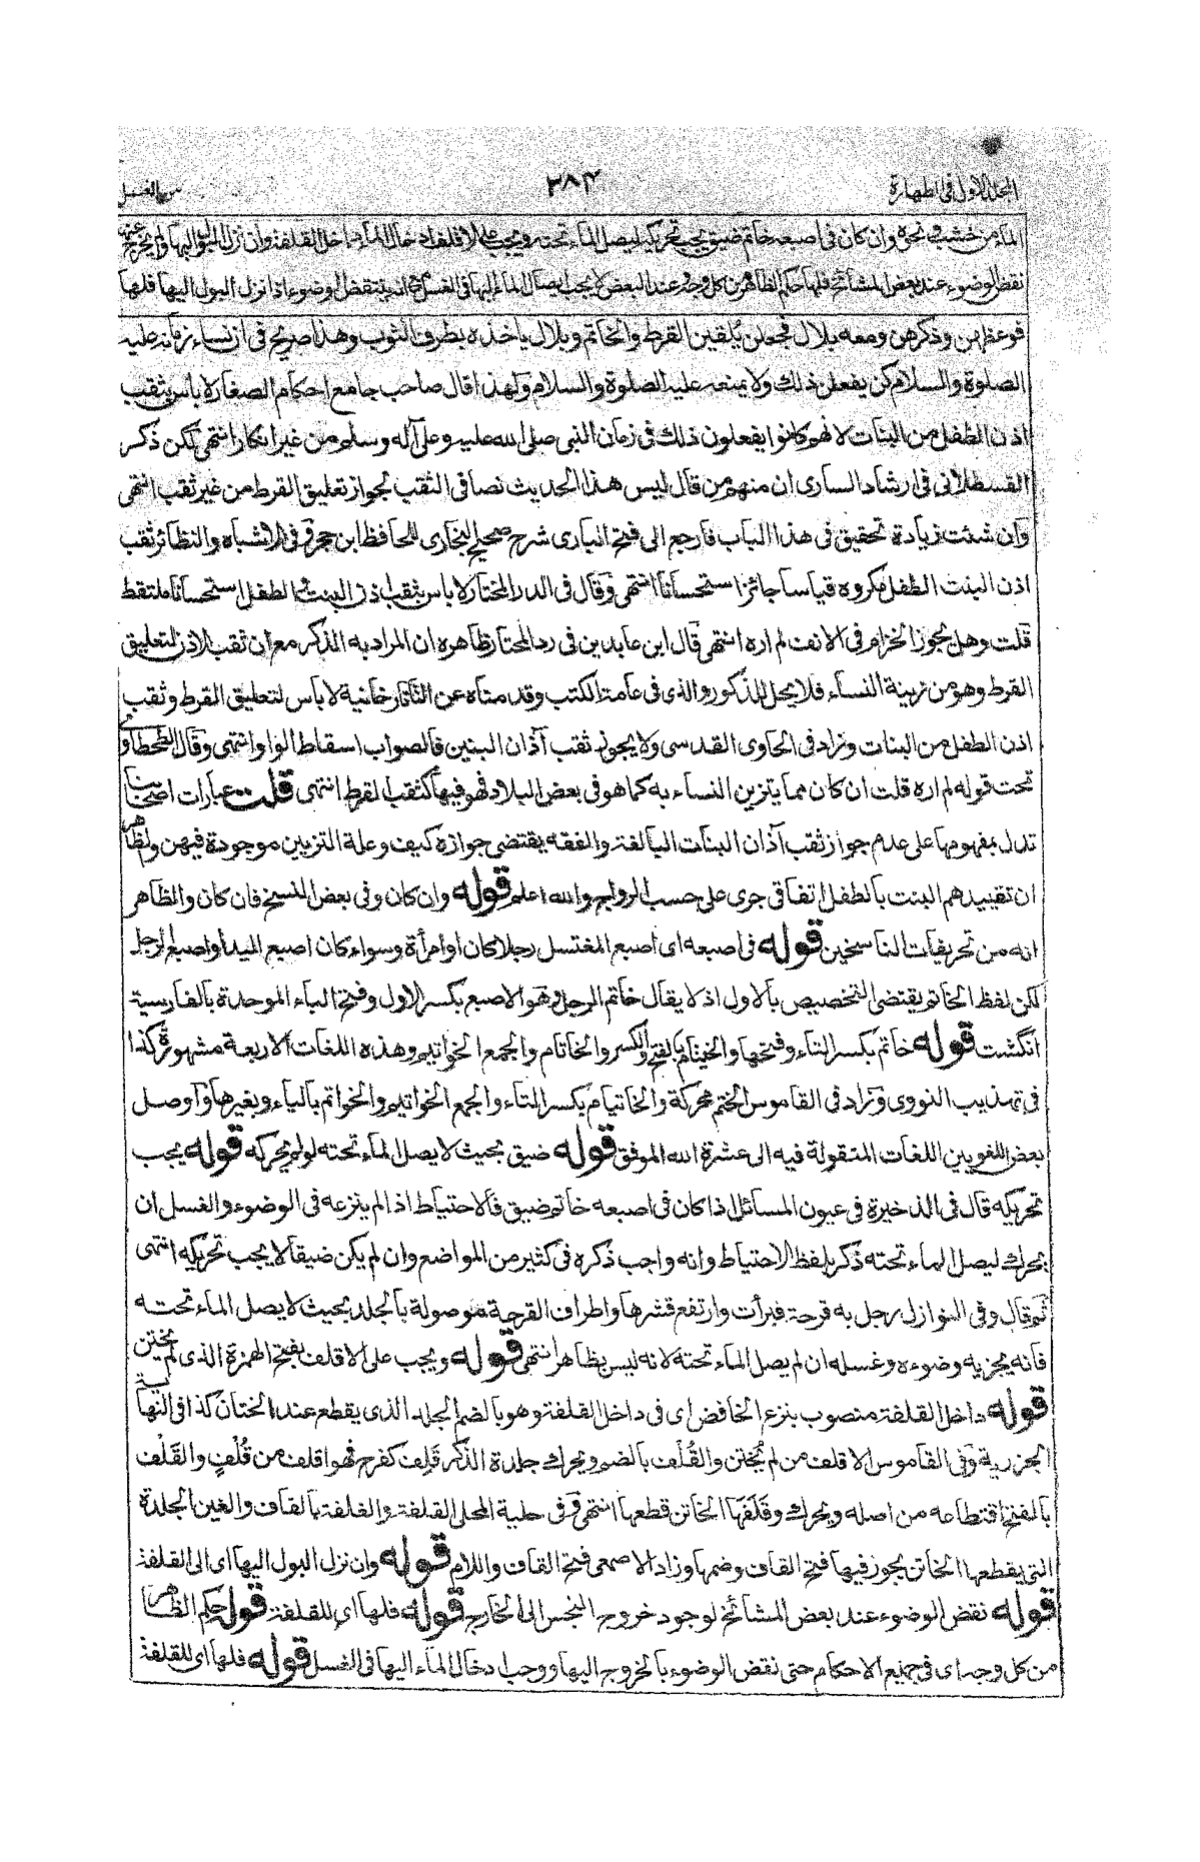 المجلد الاول فى الطهارة
٣٨۴
الماء من خشب ونحوه وان كان فى اصبعه خاتم ضيق يجب تحريكه ليصل الماء تحته ويجب على الاقلف ادخال الماء داخل القلفة وان نزل البول اليها ولم يخرج عنها
نقض الوضوء عند بعض المشائخ فلها حكم الظاهر من كل وجه وعند البعض لا يجب ايصال الماء اليها فى الغسل مع انه ينتقض الوضوء اذا نزل البول اليها فلها
فوعظهن وذكرهن ومعه بلال فجعلن يُلقين القرط والخاتم وبلال ياخذه بطرف الثوب وهذا صريح فى ان نساء زمانه عليه
الصلوة والسلام كن يفعلن ذلك ولا يمنعه عليه الصلوة والسلام ولهذا قال صاحب جامع احكام الصغار لا باس بثقب
اذن الطفل من البنات لانهم كانوا يفعلون ذلك فى زمان النبى صلى الله عليه وعلى آله وسلم من غير انكار انتهى لكن ذكر
القسطلانى فى ارشاد السارى ان منهم من قال ليس هذا الحديث نصا فى الثقب لجواز تعليق القرط من غير ثقب انتهى
وان شئت زيادة تحقيق فى هذا الباب فارجع الى فتح البارى شرح صحيح البخارى للحافظ ابن حجر وفى الاشباه والنظائر ثقب
اذن البنت الطفل مكروه قياسا جائز استحسانا انتهى وقال فى الدر المختار لا باس بثقب اذن البنت الطفل استحسانا ملتقط
قلت وهل يجوز الخزام فى الانف لم اره انتهى قال ابن عابدين فى رد المحتار ظاهره ان المراد به الذكر مع ان ثقب الاذن لتعليق
القرط وهو من زينة النساء فلا يحل للذكور والذى فى عامة الكتب وقد مناه عن التاتارخانية لا باس لتعليق القرط وثقب
اذن الطفل من البنات وزاد فى الحاوى القدسى ولا يجوز ثقب آذان البنين فالصواب اسقاط الواو انتهى وقال الطحطاوى
تحت قوله لم اره قلت ان كان مما يتزين النساء به كما هو فى بعض البلاد فهو فيها كثقب القرط انتهى قلت عبارات اصحابنا
تدل بمفهومها على عدم جواز ثقب آذان البنات البالغة والفقه يقتضى جوازه كيف وعلة التزيين موجودة فيهن والظاهر
ان تقييدهم البنت بالطفل اتفاقى جرى على حسب الرواج والله اعلم قوله وان كان وفى بعض النسخ فان كان والظاهر
انه من تحريفات الناسخين قوله فى اصبعه اى اصبع المغتسل رجلا كان او امرأة وسواء كان اصبع اليد او اصبع الرجل
لكن لفظ الخاتم يقتضى التخصيص بالاول اذ لا يقال خاتم الرجل وهو الاصبع بكسر الاول وفتح الباء الموحدة بالفارسية
انگشت قوله خاتم بكسر التاء وفتحها والخيتام بالفتح والكسر والخاتام والجمع الخواتيم وهذه اللغات الاربعة مشهورة كذا
فى تهذيب النووى وزاد فى القاموس الختم محركة والخاتيام بكسر التاء والجمع الخواتيم والخواتم بالياء وبغيرها واوصل
بعض اللغويين اللغات المنقولة فيه الى عشرة الله الموفق قوله ضيق بحيث لا يصل الماء تحته لو لم يحركه قوله يجب
تحريكه قال فى الذخيرة فى عيون المسائل اذا كان فى اصبعه خاتم ضيق فالاحتياط اذا لم ينزعه فى الوضوء والغسل ان
يحرك ليصل الماء تحته ذكر بلفظ الاحتياط وانه واجب ذكره فى كثير من المواضع وان لم يكن ضيقا لا يجب تحريكه انتهى
ثم قال وفى النوازل رجل به قرحة فبرأت وارتفع قشرها واطراف القرحة موصولة بالجلد بحيث لا يصل الماء تحته
فانه يجزيه وضوءه وغسله ان لم يصل الماء تحته لانه ليس بظاهر انتهى قوله ويجب على الاقلف بفتح الهمزة الذى لم يختن
قوله داخل القلفة منصوب بنزع الخافض اى فى داخل القلفة وهو بالضم الجلد الذى يقطع عند الختان كذا فى النهاية
الجزرية وفى القاموس الاقلف من لم يُختن والقُلْف بالضم ويحرك جلدة الذكر قَلِف كفرح فهو اقلف من قُلْفٍ والقَلْف
بالفتح اقتطاعه من اصله ويحرك وقَلَفَها الخاتن قطعها انتهى وفى حلية المحلى القلفة والغلفة بالقاف والغين الجلدة
التى يقطعها الخاتن يجوز فيها فتح القاف وضمها وزاد الاصمعى فتح القاف واللام قوله وان نزل البول اليها اى الى القلفة
قوله نقض الوضوء عند بعض المشائخ لوجود خروج النجس الى الخارج قوله فلها اى للقلفة قوله حكم الظاهر
من كل وجه اى فى جميع الاحكام حتى نقض الوضوء بالخروج اليها ووجب ادخال الماء اليها فى الغسل قوله فلها اى للقلفة